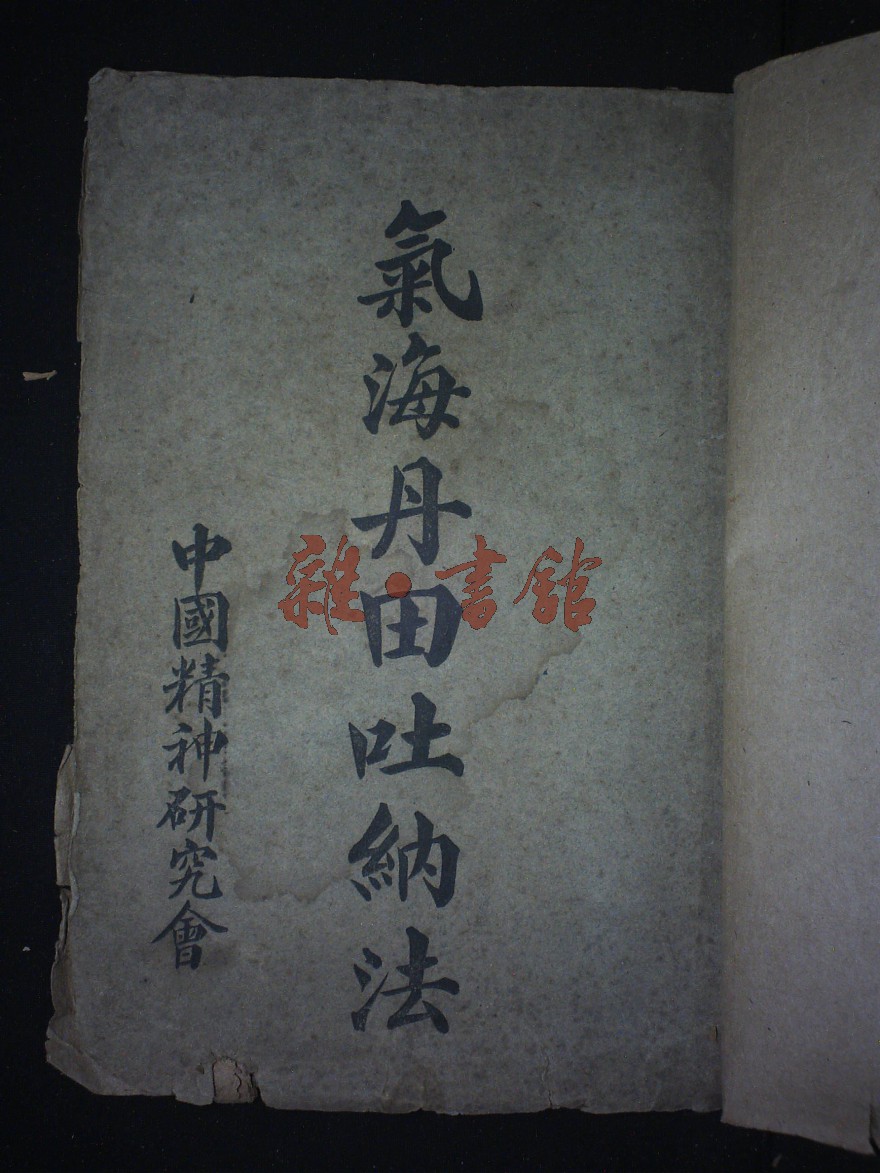 氣海丹田吐納法
中國精神研究會
雜·書館